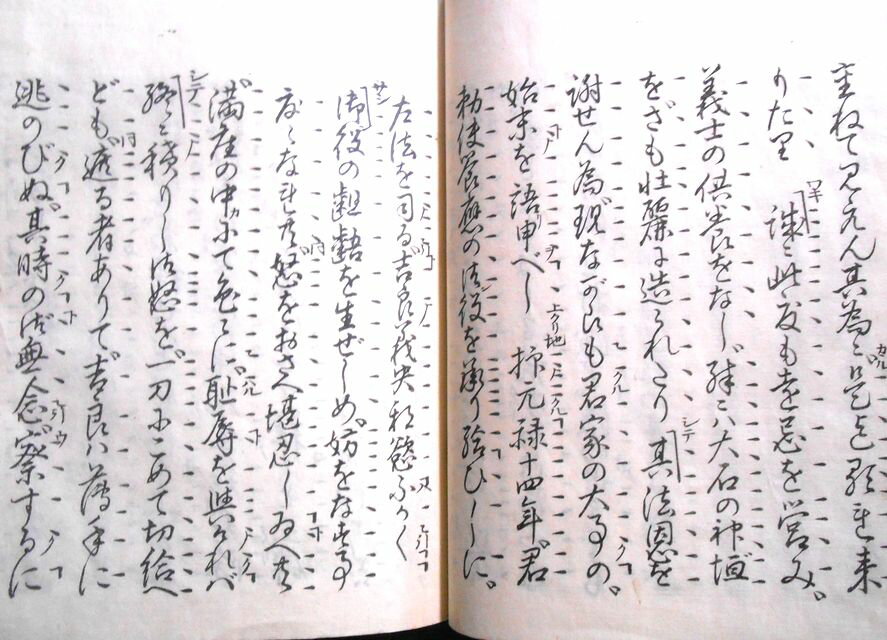 重ねて見えん其為に是迄顕れ来
りたり　ワキ　誠に此度も遠忌を営み。
義士の供養をなし殊には大石の神垣
をさも壮麗に造られたり　シテ　其法恩を
謝せん為現ながらも君家の大事の。
始末を語申べし　抑元禄十四年。君
勅使饗応の御役を蒙り給ひしに。
左法を司る吉良義央私慾ふかく
サシ　御役の齟齬を生ぜしめ。妨をなす事
度々なれ共怒をおさへ堪忍し給へ共
満座の中にて色々に恥辱を与れば
シテ　終に積りし御怒を一刀にこめて切給へ
ども遮る者ありて吉良は薄手に
逃のびぬ。其時の御無念察するに